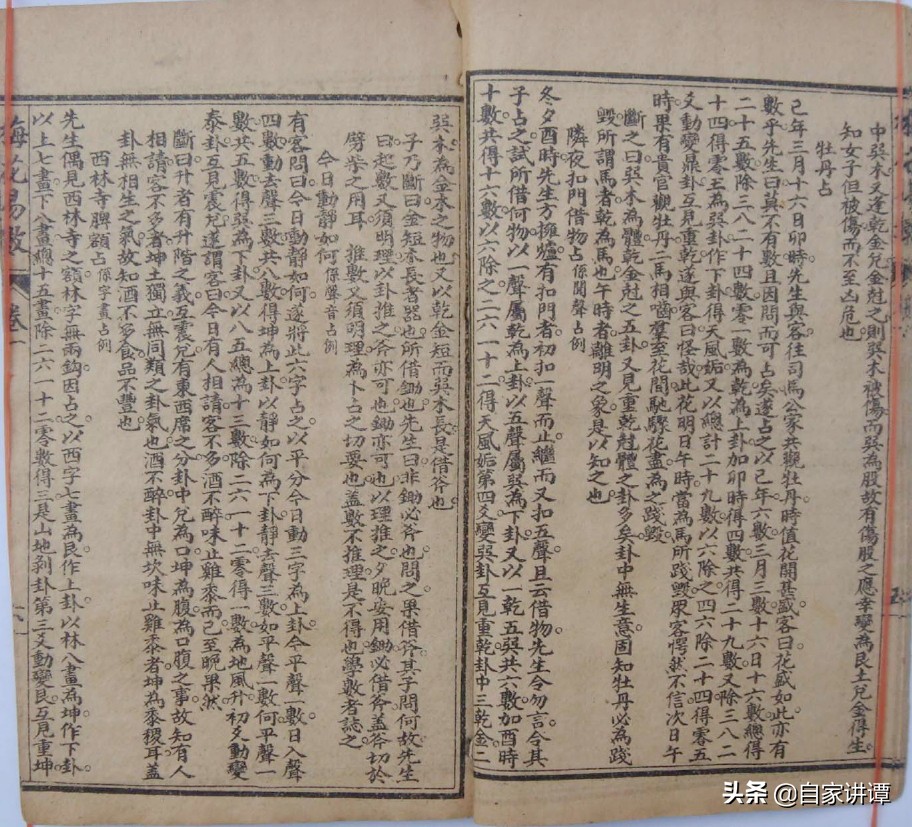 中巽木又逢乾金兌金尅之則巽木被傷而巽為股故有傷股之應幸變為艮土兌金得生
知女子但被傷而不至凶危也
牡丹占
巳年三月十六日卯時先生與客往司馬公家共觀牡丹時值花開甚盛客曰花盛如此亦有
數乎先生曰莫不有數且因問而可占矣遂占之以巳年六數三月三數十六日十六數總得
二十五數除三八二十四數零一數為乾為上卦加卯時得四數共得二十九數又除三八二
十四得零五為巽卦作下卦得天風姤又以總計二十九數以六除之四六除二十四得零五
爻動變鼎卦互見重乾遂與客曰怪哉此花明日午時當為馬所踐毀眾客愕然不信次日午
時果有貴官觀牡丹二馬相嚙羣至花間馳驟花盡為之踐毀
斷之曰巽木為體乾金尅之五卦又見重乾尅體之卦多矣卦中無生意固知牡丹必為踐
毀所謂馬者乾為馬也午時者離明之象是以知之也
隣夜扣門借物占係聞聲占例
冬夕酉時先生方擁爐有扣門者初扣一聲而止繼而又扣五聲且云借物先生令勿言令其
子占之試所借何物以一聲屬乾為上卦以五聲屬巽為下卦又以一乾五巽共六數加酉時
十數共得十六數以六除之二六一十二得天風姤第四爻變巽卦互見重乾卦中三乾金二
巽木為金木之物也又以乾金短而巽木長是借斧也
子乃斷曰金短木長者器也所借鋤也先生曰非鋤必斧也問之果借斧其子問何故先生
曰起數又須明理以卦推之斧亦可也鋤亦可也以理推之夕晚安用鋤必借斧蓋斧切於
劈柴之用耳 推數又須明理為卜占之切要也蓋數不推理是不得也學數者誌之
今日動靜如何係聲音占例
有客問曰今日動靜如何遂將此六字占之以平分今日動三字為上卦今平聲一數日入聲
四數動去聲三數共八數得坤為上卦以靜如何為下卦靜去聲三數如平聲一數何平聲一
數共五數得巽為下卦又以八五總為十三數除二六一十二零得一數為地風升初爻動變
泰卦互見震兌遂謂客曰今日有人相請客不多酒不醉味止雞黍而已至晚果然
斷曰升者有升階之義互震兌有東西席之分卦中兌為口坤為腹為口腹之事故知有人
相請客不多者坤土獨立無同類之卦氣也酒不醉卦中無坎味止雞黍者坤為黍稷耳蓋
卦無相生之氣故知酒不多食品不豐也
西林寺牌額占係字畫占例
先生偶見西林寺之額林字無兩鈎因占之以西字七畫為艮作上卦以林八畫為坤作下卦
以上七畫下八畫總十五畫除二六一十二零數得三是山地剥卦第三爻動變艮互見重坤
梅花易數
卷一
头条 @自家讲谭